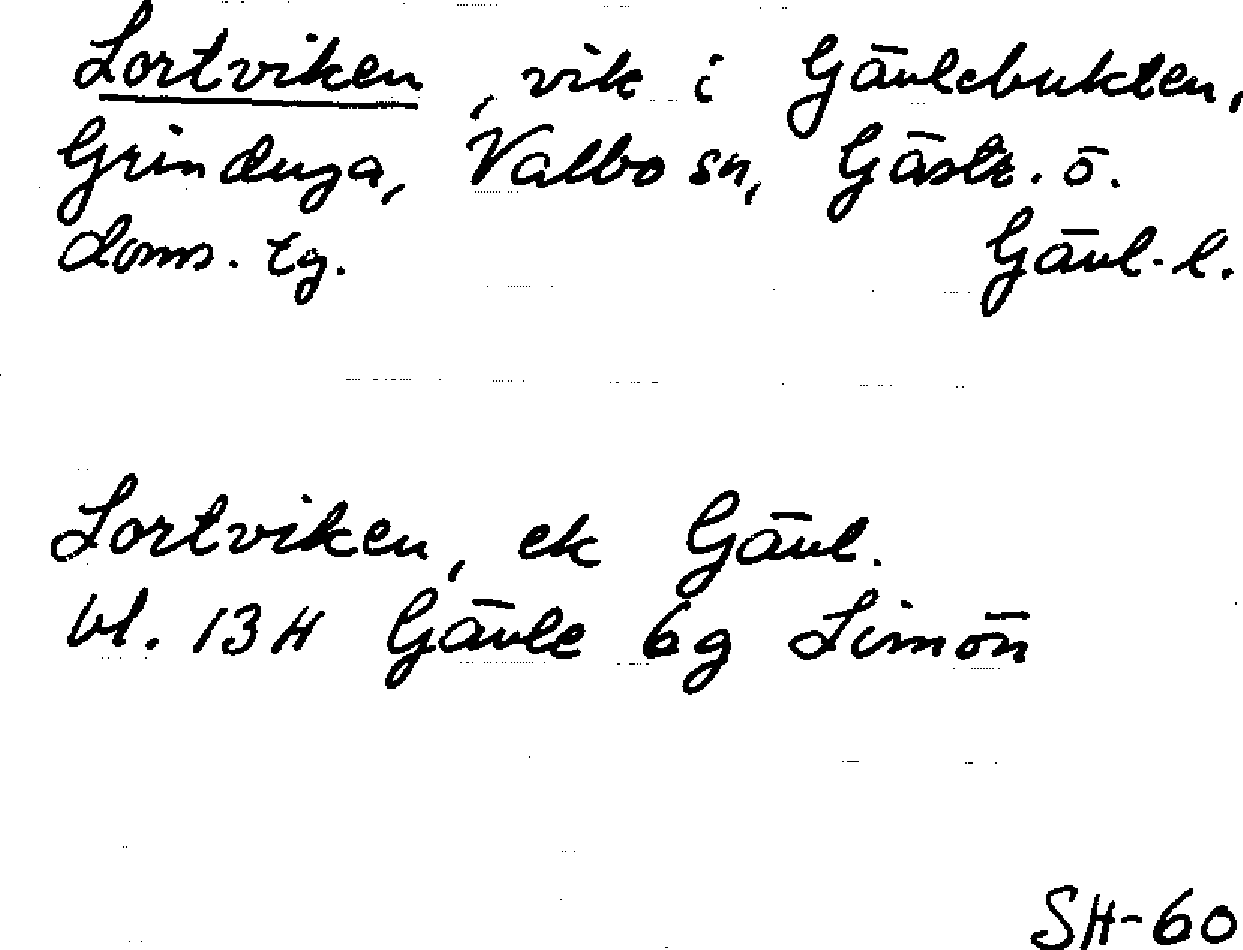 Lortviken, vik i Gävlebukten,
Grinduga, Valbo sn, Gästr. ö.
doms. tg. Gävl. l.
Lortviken, ek Gävl.
bl. 13 H Gävle 6g Limön
SH-60